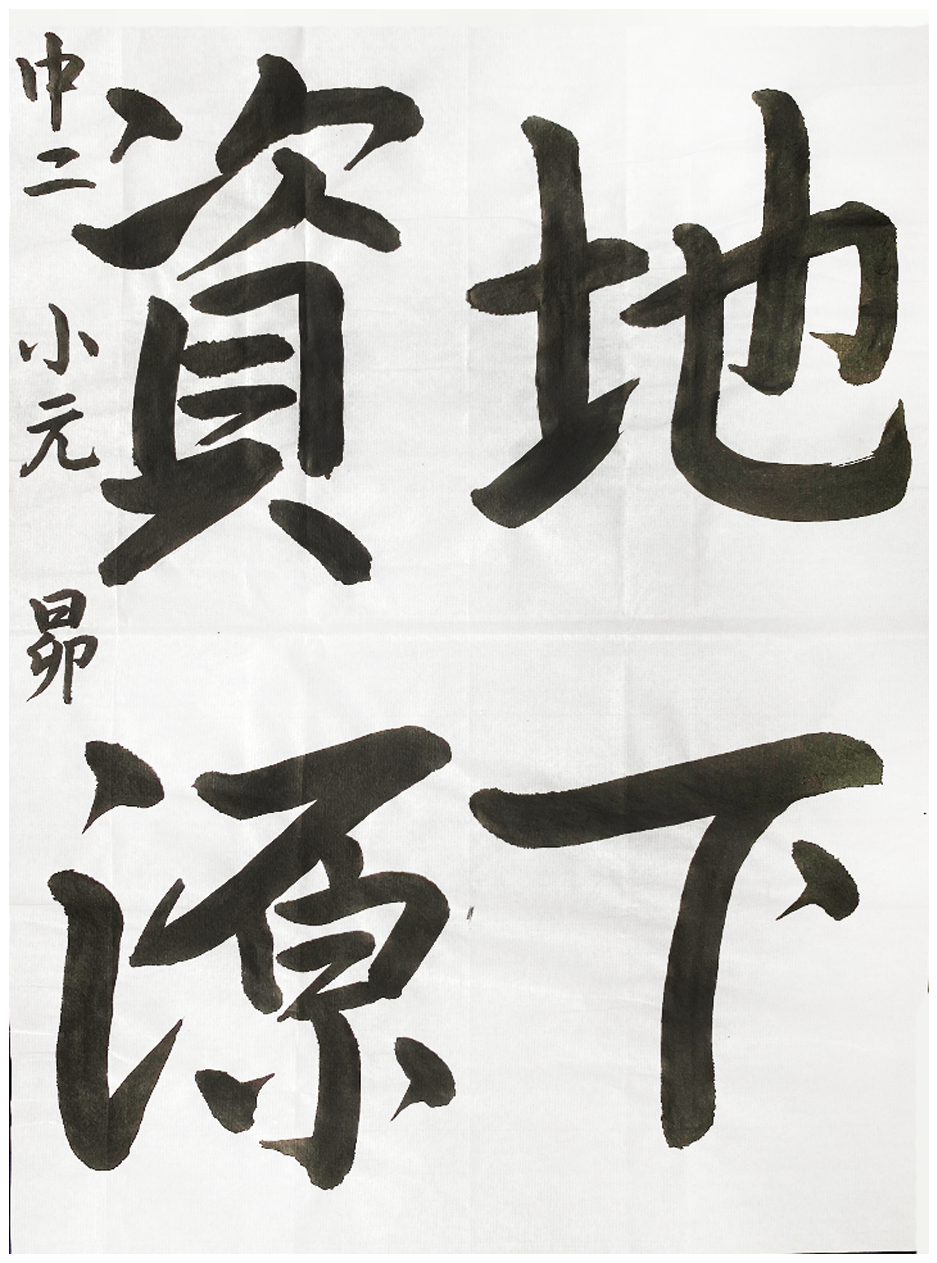 地下
資源
中二 小元 昴